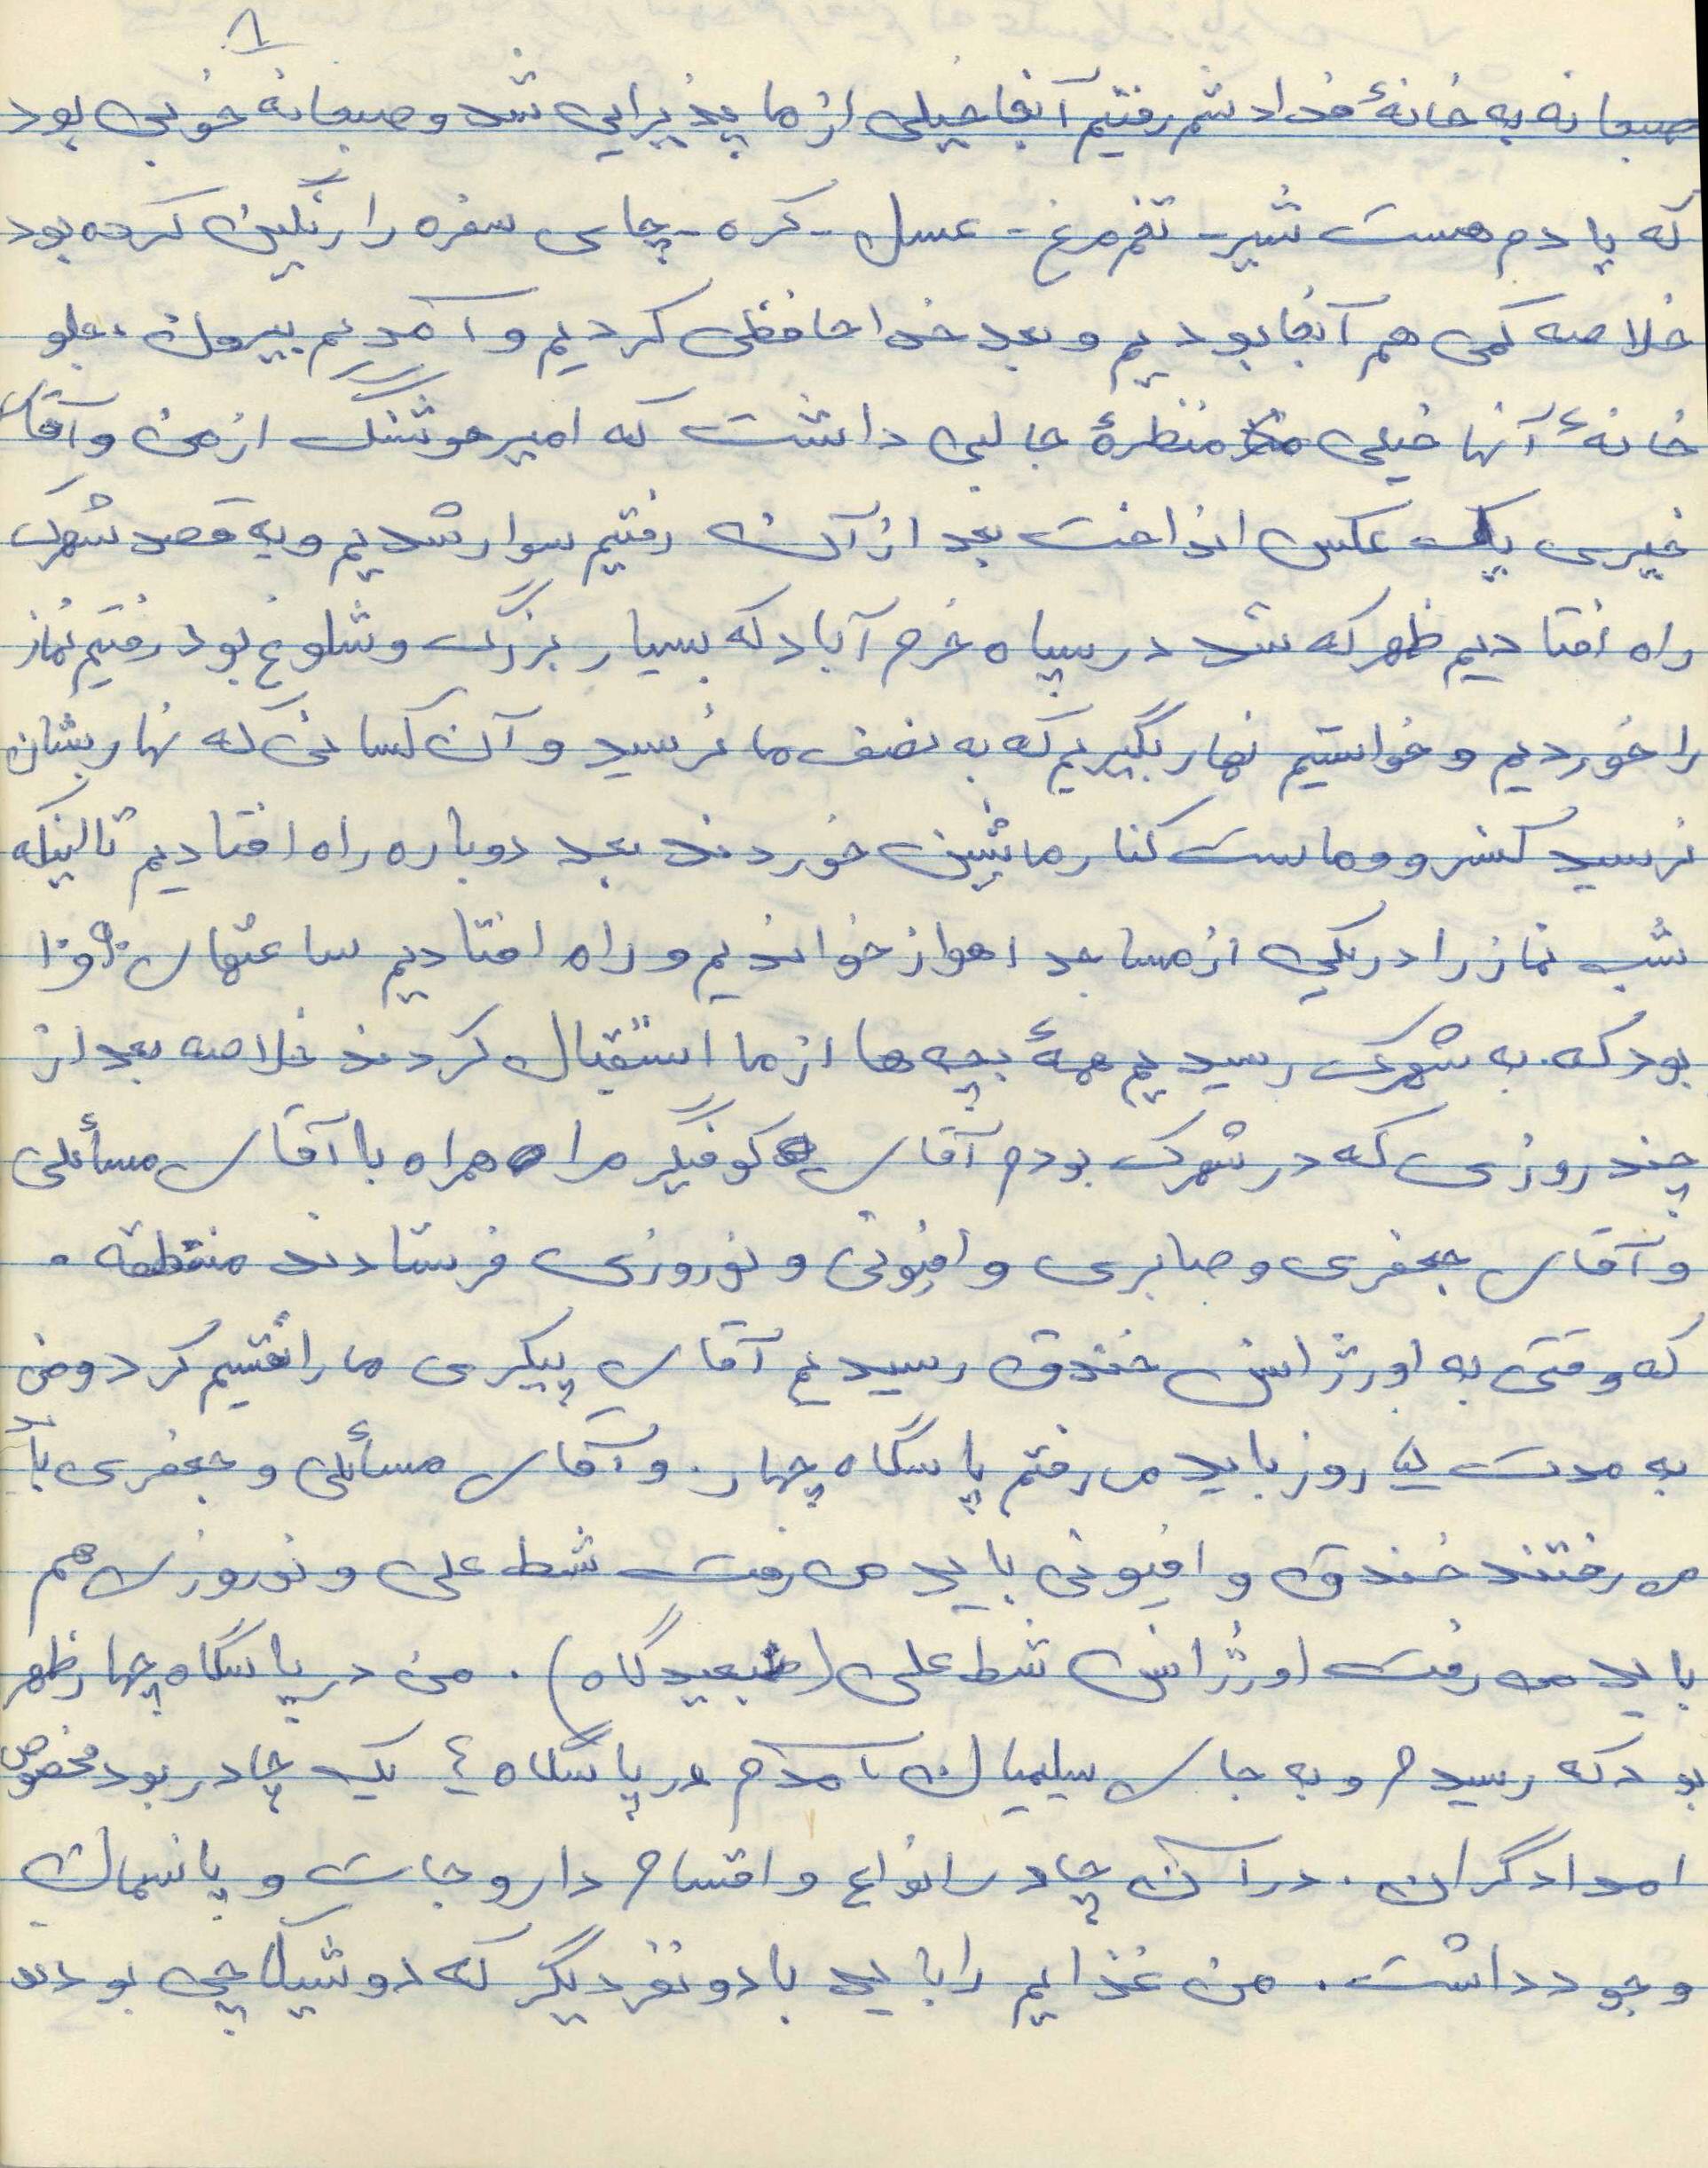 ۸
صبحانه به خانهٔ خدادشم رفتیم آنجا خیلی از ما پذیرایی شد و صبحانه خوبی بود
که یادم هست شیر - تخم مرغ - عسل - کره - چای سفره را رنگین کرده بود
خلاصه کمی هم آنجا بودیم و بعد خداحافظی کردیم و آمدیم بیرون، جلو
خانهٔ آنها خیلی منظرهٔ جالبی داشت که امیر هوشنگ از من و آقای
خیری یک عکس انداخت بعد از آن رفتیم سوار شدیم و به قصد شهرک
راه افتادیم ظهر که شد در سپاه خرم آباد که بسیار بزرگ و شلوغ بود رفتیم نماز
را خوردیم و خواستیم نهار بگیریم که به نصف ما نرسید و آن کسانی که نهار بشان
نرسید کنسرو و ماست کنار ماشین خوردند بعد دوباره راه افتادیم تا اینکه
شب نماز را در یکی از مساجد اهواز خواندیم و راه افتادیم ساعتهای ۹ و ۱۰
بود که به شهرک رسیدیم همهٔ بچه ها از ما استقبال کردند خلاصه بعد از
چند روزی که در شهرک بودم آقای کوفیگر مرا همراه با آقای مسائلی
و آقای جعفری و صابری و افیونی و نوروزی فرستادند منطقه .
که وقتی به اورژانس خندق رسیدیم آقای پیکری ما را تقسیم کرد و من
به مدت ۵ روز باید می رفتم پاسگاه چهار . و آقای مسائلی و جعفری باید
می رفتند خندق و افیونی باید می رفت شط علی و نوروزی هم
باید می رفت اورژانس شط علی (تبعیدگاه) . من در پاسگاه چهار ظهر
بود که رسیدم و به جای سیلمیان آمدم در پاسگاه ٤ یک چادر بود مخصوص
امدادگران . در آن چادر انواع و اقسام داروجات و پانسمان
وجود داشت . من غذایم را باید با دو نفر دیگر که دوشیکاچی بودند